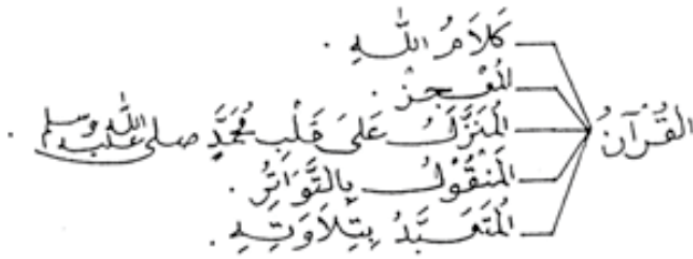 القُرْآنُ
كَلَامُ اللّٰهِ .
المُعْجِزُ .
المُنَزَّلُ عَلَى قَلْبِ مُحَمَّدٍ صلى اللّٰه عليه وسلم .
المَنْقُوْلُ بِالتَّوَاتُرِ .
المُتَعَبَّدُ بِتِلَاوَتِهِ .